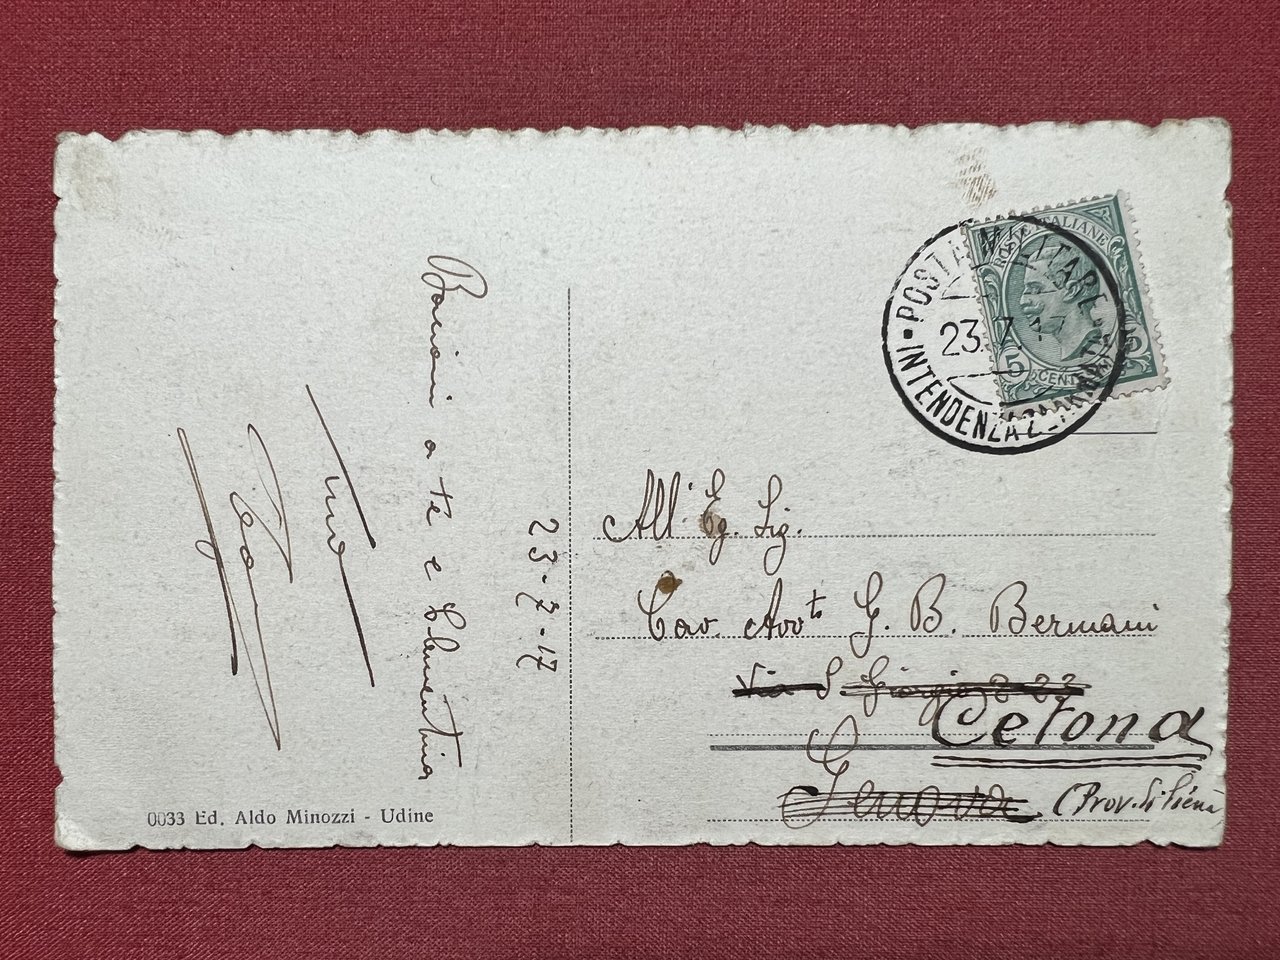 POSTE ITALIANE
CENT. 5
POSTA MILITARE
23.7.17
INTENDENZA 2 ARMATA
23-7-17
Bacioni a te e Clementina
tuo
All' Eg. Sig.
Cav. Avvto G. B. Bermani
Via S Giorgio 2
Cetona
Genova (Prov. di Siena
0033 Ed. Aldo Minozzi - Udine